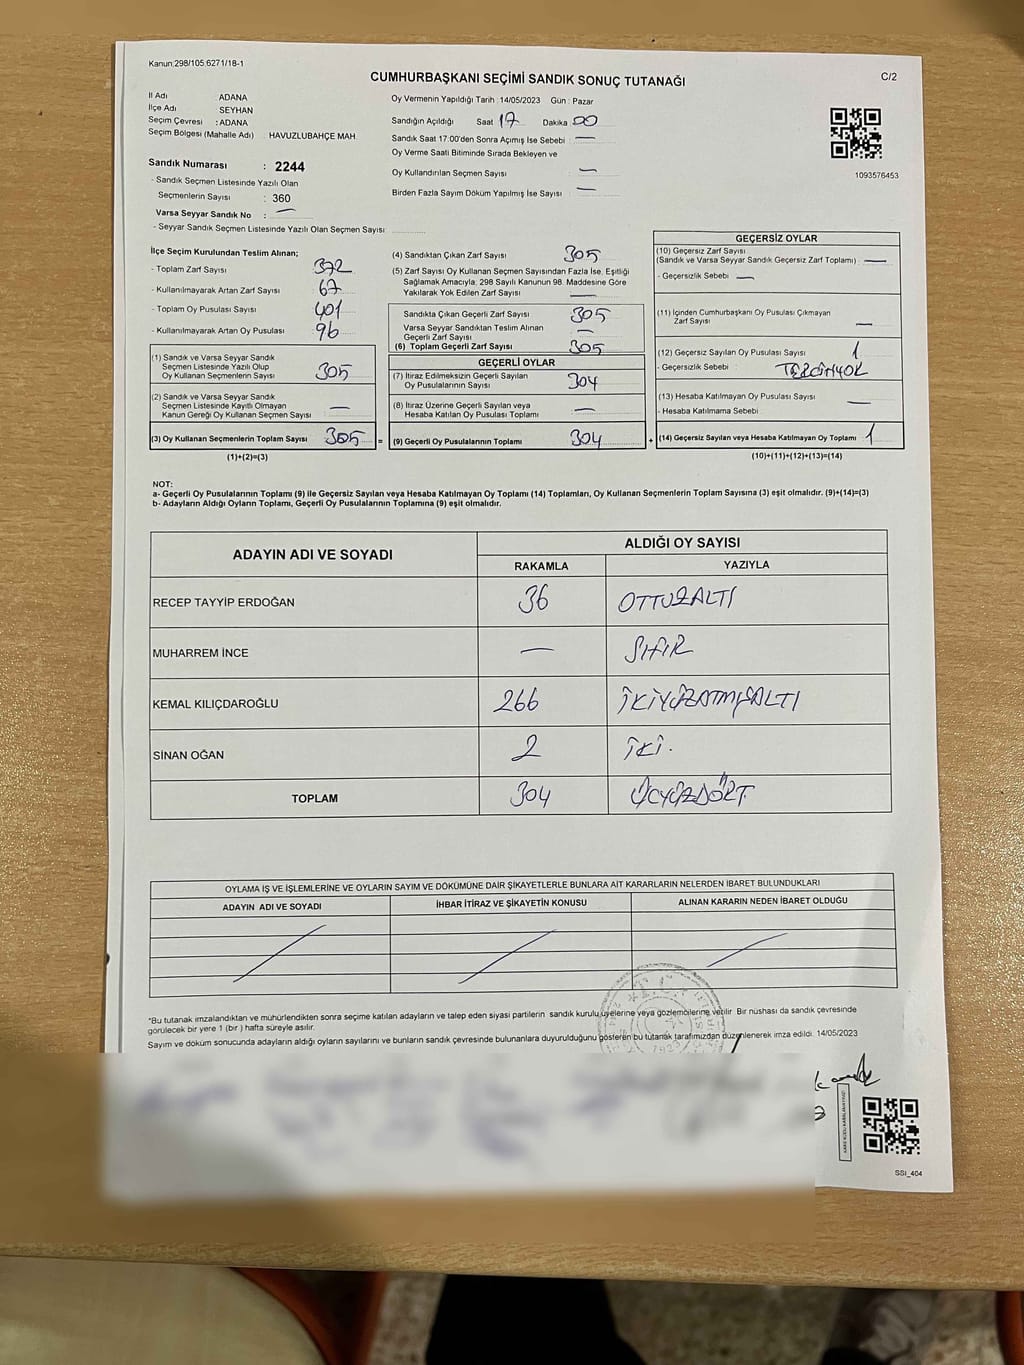 Kanun:298/105.6271/18-1
CUMHURBAŞKANI SEÇİMİ SANDIK SONUÇ TUTANAĞI
C/2
İl Adı ADANA
İlçe Adı SEYHAN
Seçim Çevresi : ADANA
Seçim Bölgesi (Mahalle Adı) : HAVUZLUBAHÇE MAH.
Sandık Numarası : 2244
- Sandık Seçmen Listesinde Yazılı Olan
Seçmenlerin Sayısı : 360
Varsa Seyyar Sandık No : —
- Seyyar Sandık Seçmen Listesinde Yazılı Olan Seçmen Sayısı
Oy Vermenin Yapıldığı Tarih :14/05/2023 Gün : Pazar
Sandığın Açıldığı Saat 17 Dakika 00
Sandık Saat 17:00'den Sonra Açımış İse Sebebi : —
Oy Verme Saati Bitiminde Sırada Bekleyen ve
Oy Kullandırılan Seçmen Sayısı —
Birden Fazla Sayım Döküm Yapılmış İse Sayısı —
1093576453
İlçe Seçim Kurulundan Teslim Alınan;
- Toplam Zarf Sayısı 372
- Kullanılmayarak Artan Zarf Sayısı 67
- Toplam Oy Pusulası Sayısı 401
- Kullanılmayarak Artan Oy Pusulası 96
(1) Sandık ve Varsa Seyyar Sandık
Seçmen Listesinde Yazılı Olup
Oy Kullanan Seçmenlerin Sayısı 305
(2) Sandık ve Varsa Seyyar Sandık
Seçmen Listesinde Kayıtlı Olmayan
Kanun Gereği Oy Kullanan Seçmen Sayısı —
(3) Oy Kullanan Seçmenlerin Toplam Sayısı 305 =
(1)+(2)=(3)
(4) Sandıktan Çıkan Zarf Sayısı 305
(5) Zarf Sayısı Oy Kullanan Seçmen Sayısından Fazla İse, Eşitliği
Sağlamak Amacıyla; 298 Sayılı Kanunun 98. Maddesine Göre
Yakılarak Yok Edilen Zarf Sayısı —
Sandıkta Çıkan Geçerli Zarf Sayısı 305
Varsa Seyyar Sandıktan Teslim Alınan
Geçerli Zarf Sayısı —
(6) Toplam Geçerli Zarf Sayısı 305
GEÇERLİ OYLAR
(7) İtiraz Edilmeksizin Geçerli Sayılan
Oy Pusulalarının Sayısı 304
(8) İtiraz Üzerine Geçerli Sayılan veya
Hesaba Katılan Oy Pusulası Toplamı —
(9) Geçerli Oy Pusulalarının Toplamı 304 +
GEÇERSİZ OYLAR
(10) Geçersiz Zarf Sayısı
(Sandık ve Varsa Seyyar Sandık Geçersiz Zarf Toplamı) —
- Geçersizlik Sebebi —
(11) İçinden Cumhurbaşkanı Oy Pusulası Çıkmayan
Zarf Sayısı —
(12) Geçersiz Sayılan Oy Pusulası Sayısı 1
- Geçersizlik Sebebi TERCİH YOK
(13) Hesaba Katılmayan Oy Pusulası Sayısı —
- Hesaba Katılmama Sebebi
(14) Geçersiz Sayılan veya Hesaba Katılmayan Oy Toplamı 1
(10)+(11)+(12)+(13)=(14)
NOT:
a- Geçerli Oy Pusulalarının Toplamı (9) ile Geçersiz Sayılan veya Hesaba Katılmayan Oy Toplamı (14) Toplamları, Oy Kullanan Seçmenlerin Toplam Sayısına (3) eşit olmalıdır. (9)+(14)=(3)
b- Adayların Aldığı Oyların Toplamı, Geçerli Oy Pusulalarının Toplamına (9) eşit olmalıdır.
ADAYIN ADI VE SOYADI ALDIĞI OY SAYISI
RAKAMLA YAZIYLA
RECEP TAYYİP ERDOĞAN 36 OTTUZALTI
MUHARREM İNCE — SIFIR
KEMAL KILIÇDAROĞLU 266 İKİYÜZATMIŞALTI
SİNAN OĞAN 2 İKİ.
TOPLAM 304 ÜÇYÜZDÖRT
OYLAMA İŞ VE İŞLEMLERİNE VE OYLARIN SAYIM VE DÖKÜMÜNE DAİR ŞİKAYETLERLE BUNLARA AİT KARARLARIN NELERDEN İBARET BULUNDUKLARI
ADAYIN ADI VE SOYADI İHBAR İTİRAZ VE ŞİKAYETİN KONUSU ALINAN KARARIN NEDEN İBARET OLDUĞU
T.C.
*Bu tutanak imzalandıktan ve mühürlendikten sonra seçime katılan adayların ve talep eden siyasi partilerin sandık kurulu üyelerine veya gözlemcilerine verilir. Bir nüshası da sandık çevresinde
görülecek bir yere 1 (bir) hafta süreyle asılır.
Sayım ve döküm sonucunda adayların aldığı oyların sayılarını ve bunların sandık çevresinde bulunanlara duyurulduğunu gösteren bu tutanak tarafımızdan düzenlenerek imza edildi. 14/05/2023
SSI_404